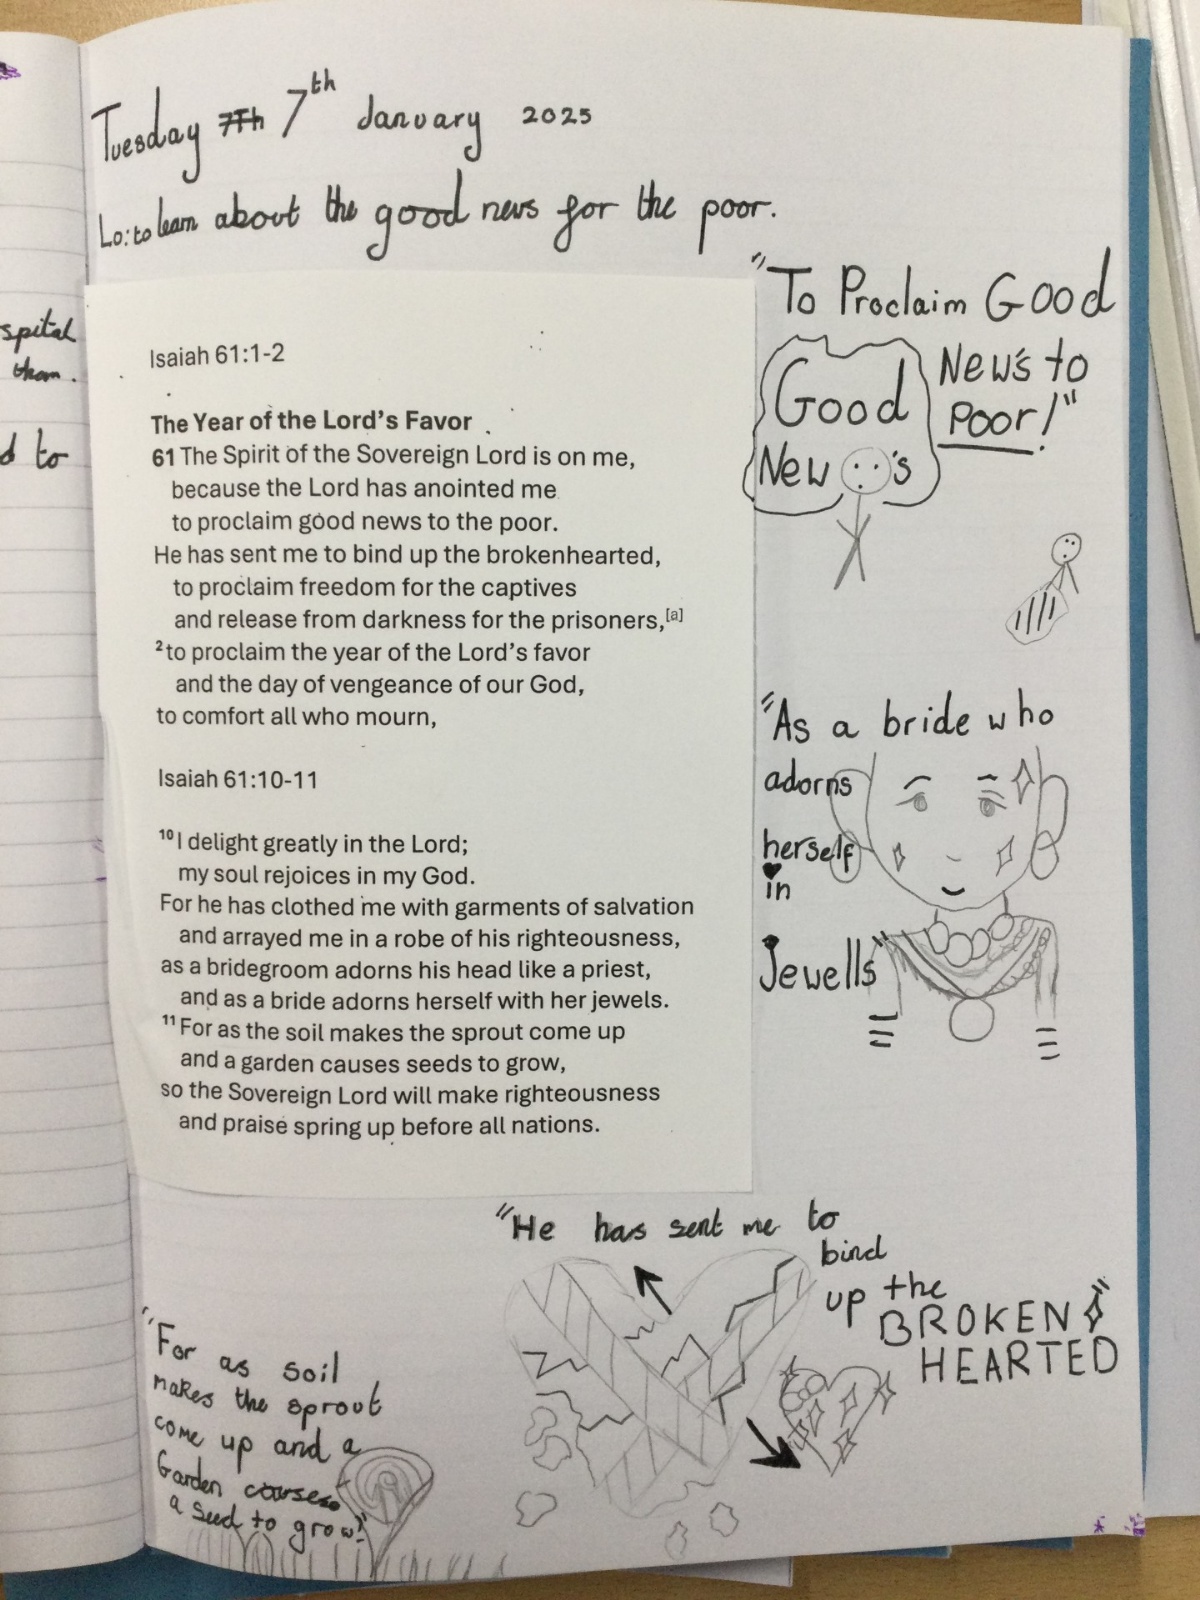 Tuesday 7Th 7th January 2025
Lo: to learn about the good news for the poor.
spital
them.
d to
Isaiah 61:1-2
The Year of the Lord's Favor
61 The Spirit of the Sovereign Lord is on me,
because the Lord has anointed me
to proclaim good news to the poor.
He has sent me to bind up the brokenhearted,
to proclaim freedom for the captives
and release from darkness for the prisoners,[a]
2 to proclaim the year of the Lord's favor
and the day of vengeance of our God,
to comfort all who mourn,
Isaiah 61:10-11
10 I delight greatly in the Lord;
my soul rejoices in my God.
For he has clothed me with garments of salvation
and arrayed me in a robe of his righteousness,
as a bridegroom adorns his head like a priest,
and as a bride adorns herself with her jewels.
11 For as the soil makes the sprout come up
and a garden causes seeds to grow,
so the Sovereign Lord will make righteousness
and praise spring up before all nations.
"To Proclaim Good
New's to
Poor!"
Good
New's
"As a bride who
adorns
herself
in
Jewells"
"He has sent me to
bind
up the
BROKEN"
HEARTED
"For as soil
makes the sprout
come up and a
Garden courses
a seed to grow!"